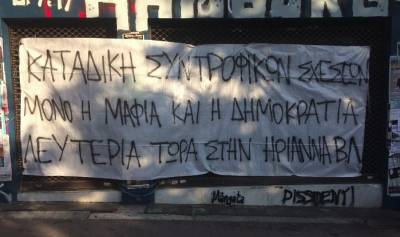 ΚΑΤΑΔΙΚΗ ΣΥΝΤΡΟΦΙΚΩΝ ΣΧΕΣΕΩΝ
ΜΟΝΟ Η ΜΑΦΙΑ ΚΑΙ Η ΔΗΜΟΚΡΑΤΙΑ
ΛΕΥΤΕΡΙΑ ΤΩΡΑ ΣΤΗΝ ΗΡΙΑΝΝΑ ΒΛ
DISSIDENT